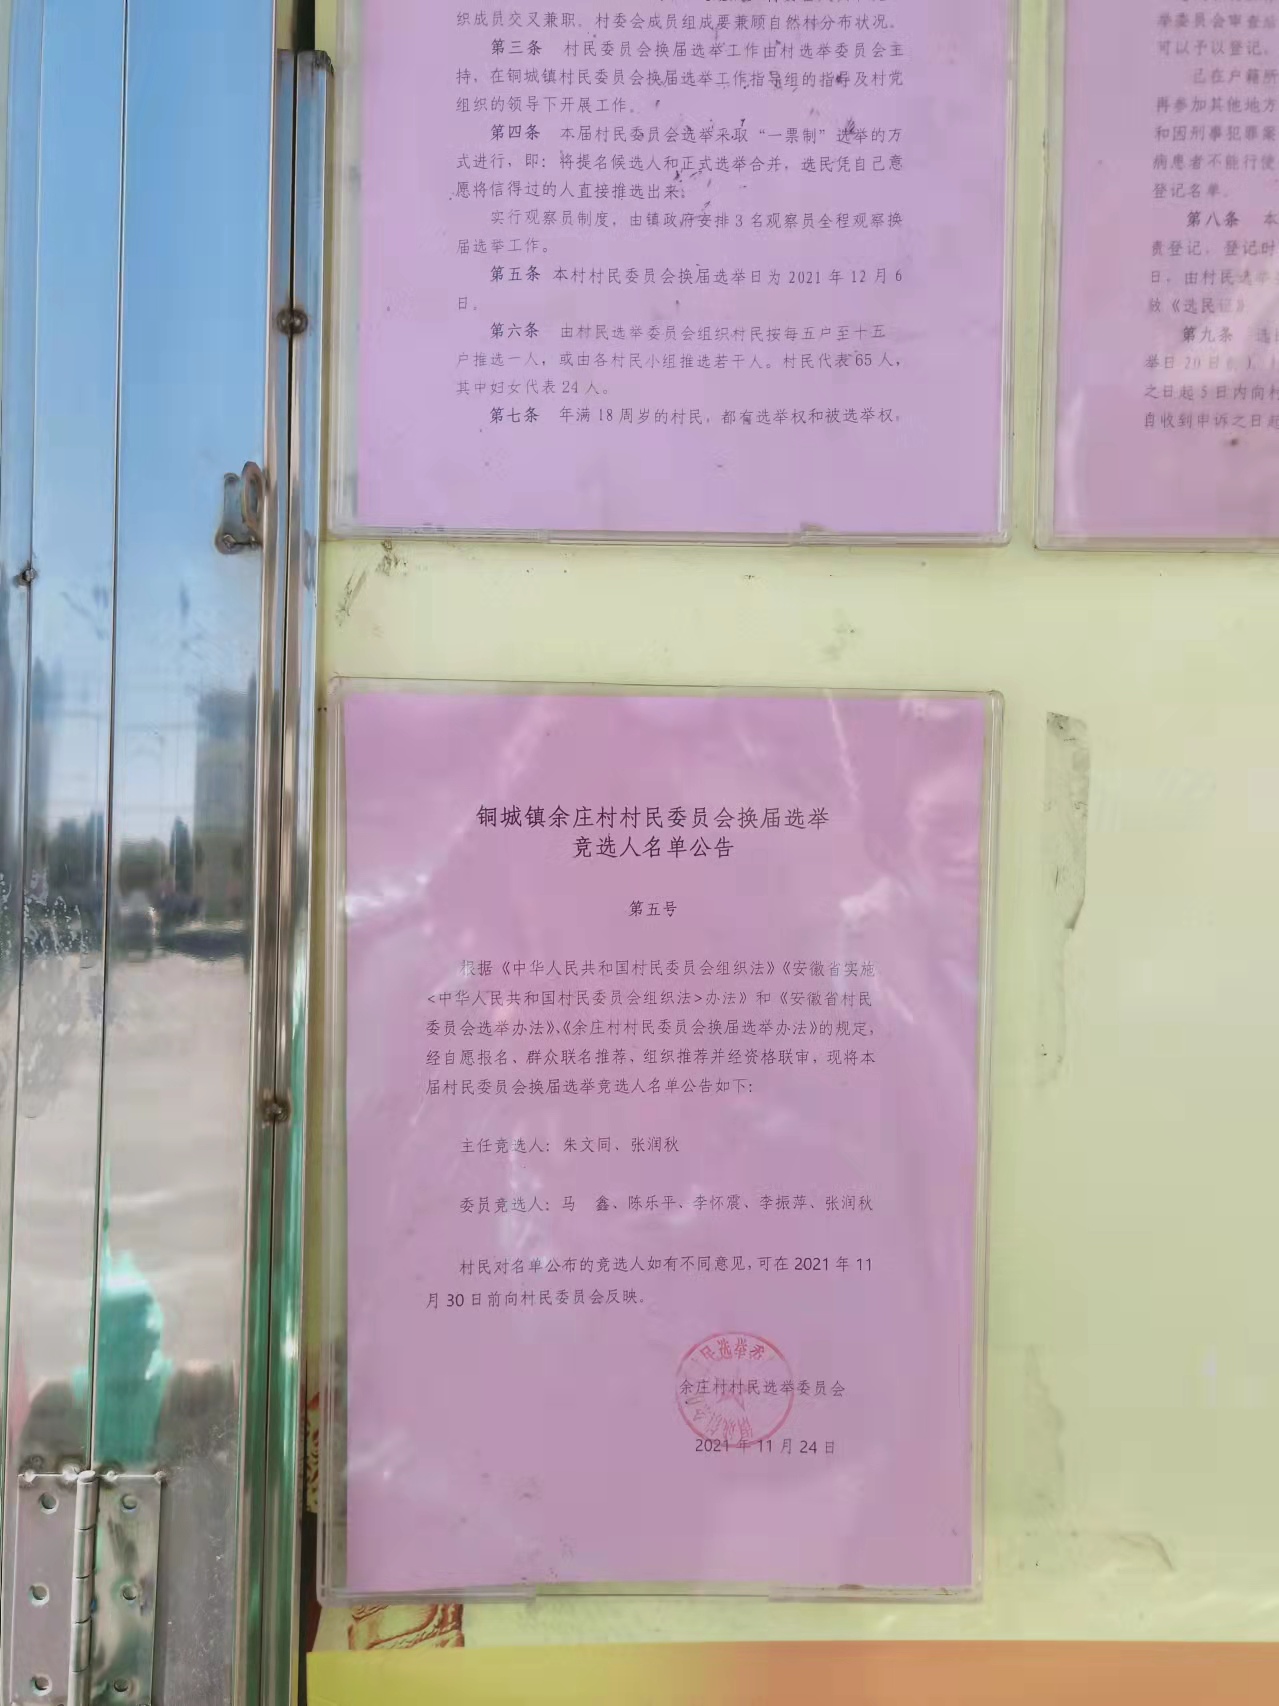 织成员交叉兼职。村委会成员组成要兼顾自然村分布状况。
第三条 村民委员会换届选举工作由村选举委员会主
持，在铜城镇村民委员会换届选举工作指导组的指导及村党
组织的领导下开展工作。
第四条 本届村民委员会选举采取“一票制”选举的方
式进行，即：将提名候选人和正式选举合并，选民凭自己意
愿将信得过的人直接推选出来。
实行观察员制度，由镇政府安排3名观察员全程观察换
届选举工作。
第五条 本村村民委员会换届选举日为2021年12月6
日。
第六条 由村民选举委员会组织村民按每五户至十五
户推选一人，或由各村民小组推选若干人。村民代表65人，
其中妇女代表24人。
第七条 年满18周岁的村民，都有选举权和被选举权。
举委员会审查
可以予以登记。
已在户籍所
再参加其他地方
和因刑事犯罪案
病患者不能行使
登记名单。
第八条 本
责登记，登记时
日，由村民选举
放《选民证》
第九条 选
举日20日
之日起5日内向村
自收到申诉之日起
铜城镇余庄村村民委员会换届选举
竞选人名单公告
第五号
根据《中华人民共和国村民委员会组织法》《安徽省实施
<中华人民共和国村民委员会组织法>办法》和《安徽省村民
委员会选举办法》、《余庄村村民委员会换届选举办法》的规定，
经自愿报名、群众联名推荐、组织推荐并经资格联审，现将本
届村民委员会换届选举竞选人名单公告如下：
主任竞选人：朱文同、张润秋
委员竞选人：马 鑫、陈乐平、李怀震、李振萍、张润秋
村民对名单公布的竞选人如有不同意见，可在2021年11
月30日前向村民委员会反映。
民选举委
余庄村村民选举委员会
2021年11月24日